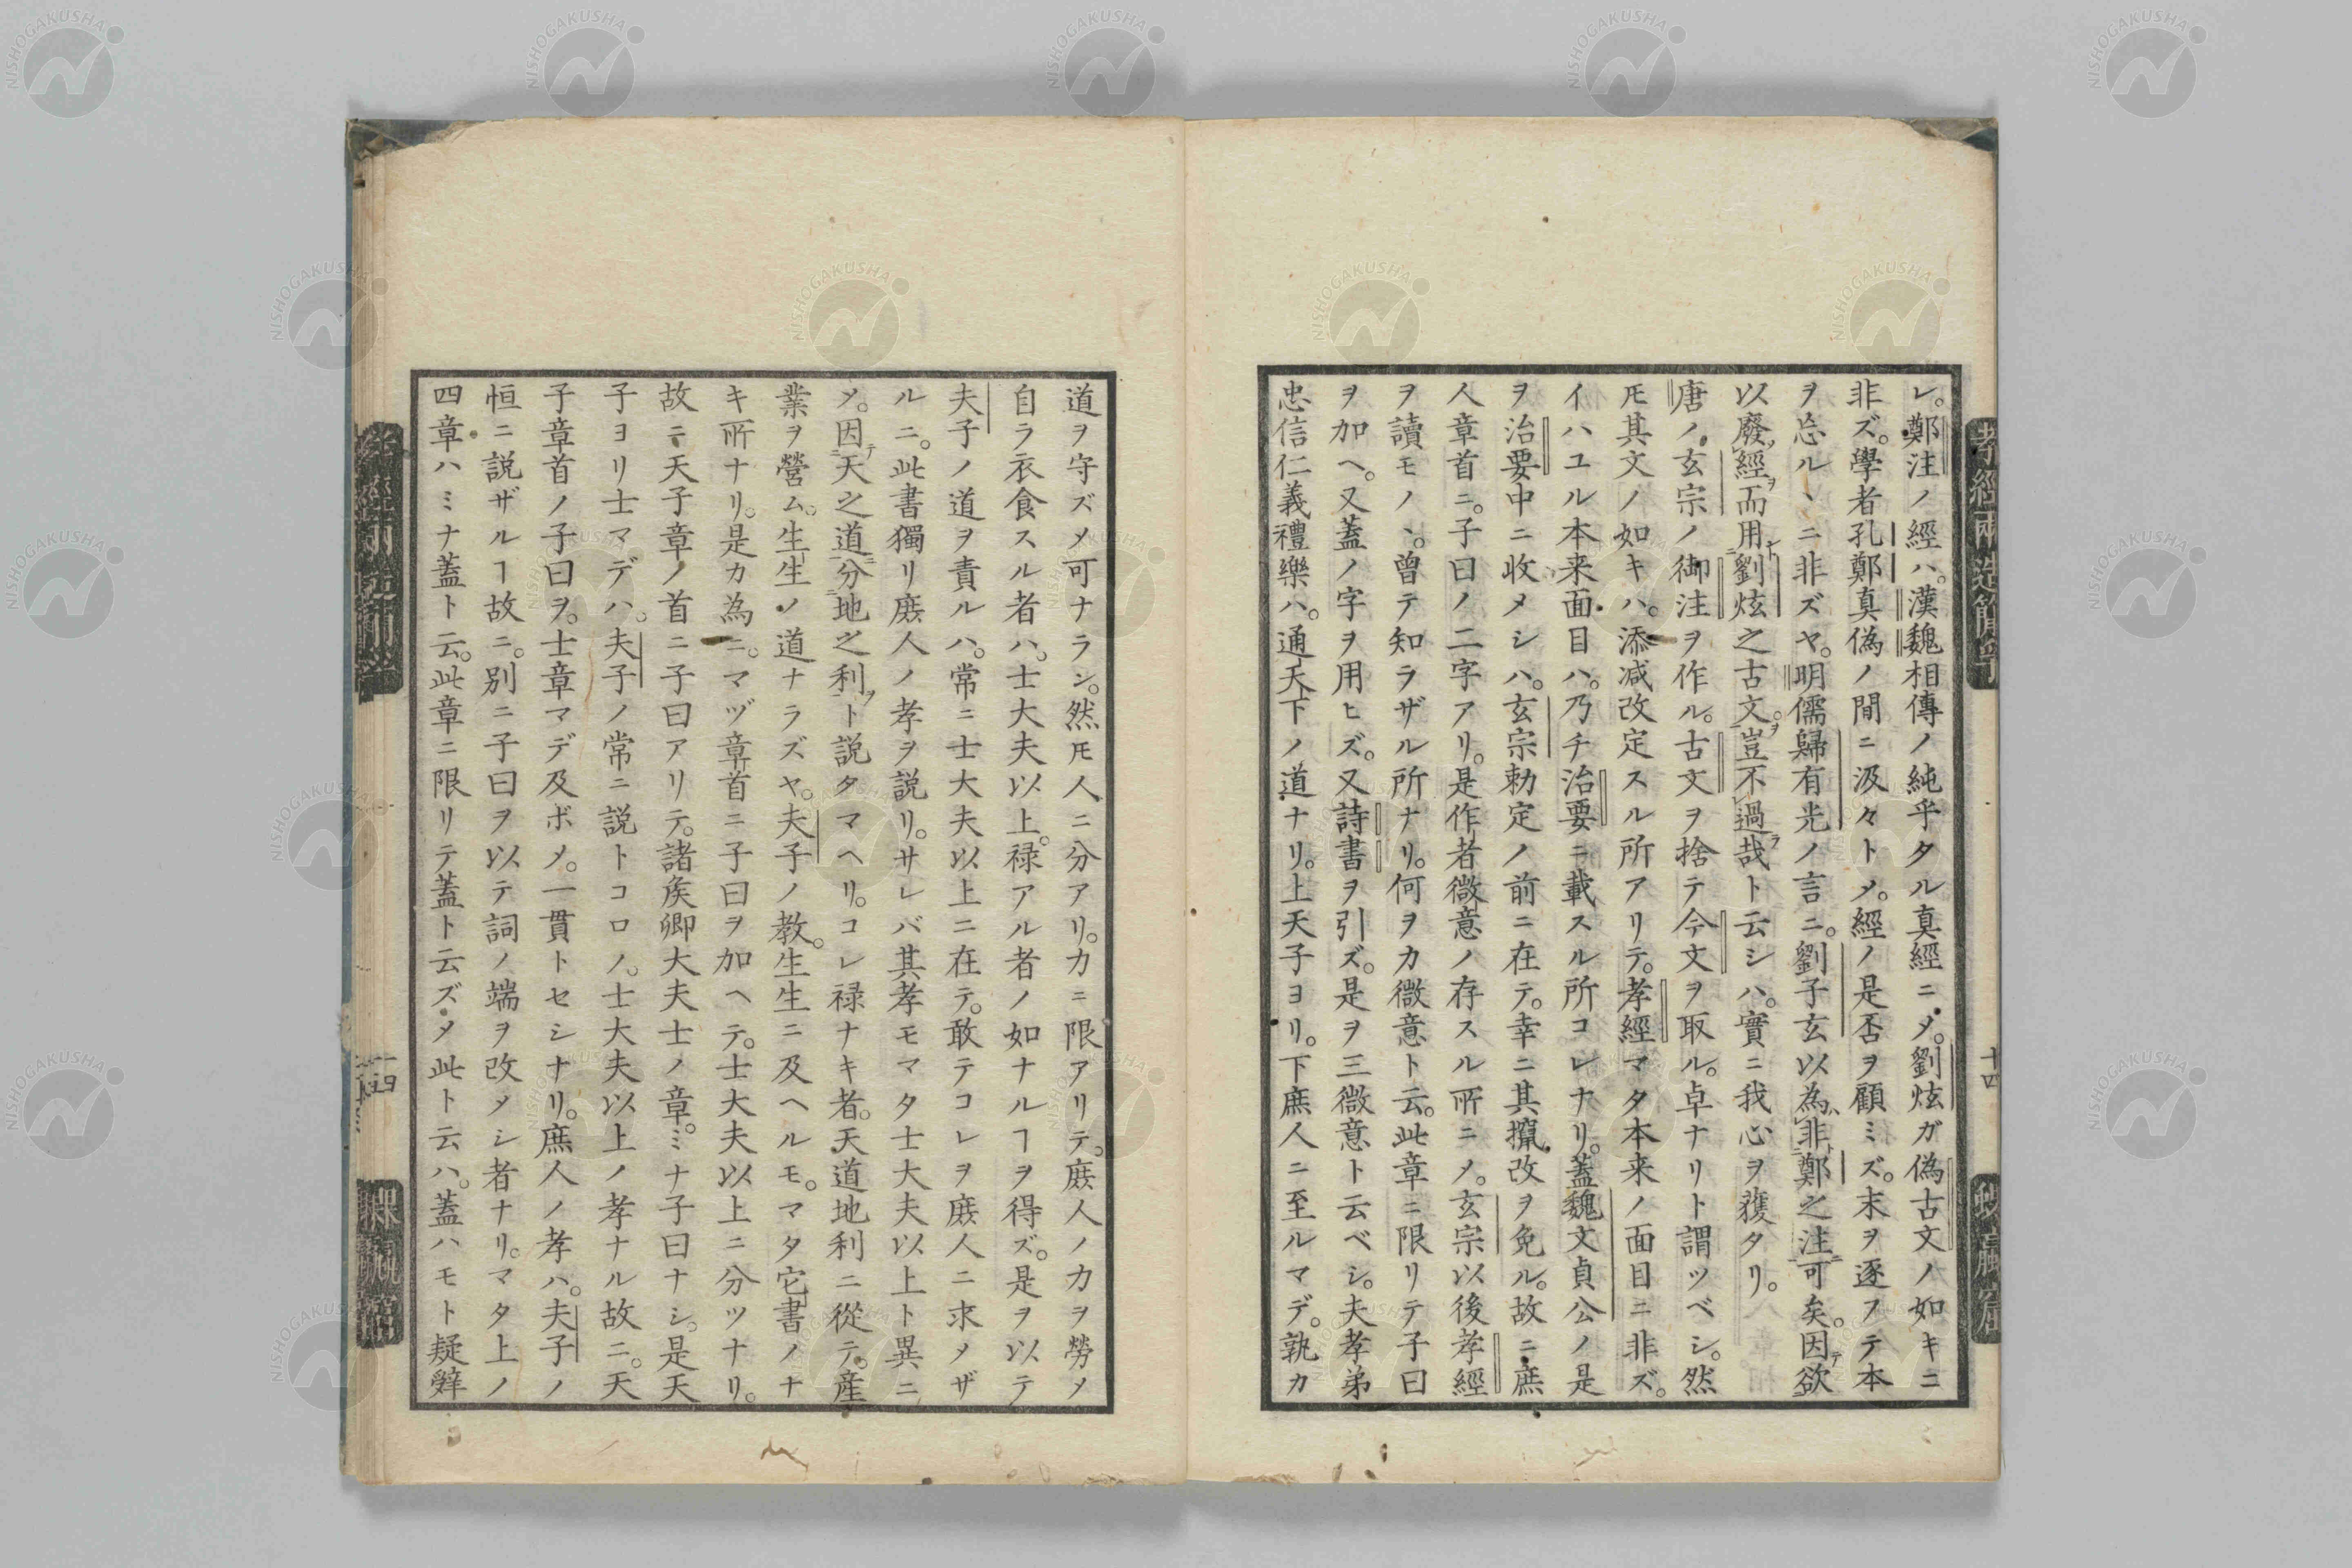 レ。鄭注ノ經ハ。漢魏相傳ノ純乎タル真經ニメ。劉炫ガ偽古文ノ如キニ
非ズ。學者孔鄭真偽ノ間ニ汲々トメ。經ノ是否ヲ顧ミズ。末ヲ逐フテ本
ヲ忘ルヽニ非ズヤ。明儒歸有光ノ言ニ。劉子玄以為非鄭之注可矣。因欲
以廢經而用劉炫之古文。豈不過哉ト云シハ。實ニ我心ヲ獲タリ。
唐ノ玄宗ノ御注ヲ作ル。古文ヲ捨テ今文ヲ取ル。卓ナリト謂ツベシ。然
𪜈其文ノ如キハ。添減改定スル所アリテ。孝經マタ本来ノ面目ニ非ズ。
イハユル本来面目ハ。乃チ治要ニ載スル所コレナリ。蓋魏文貞公ノ是
ヲ治要中ニ收メシハ。玄宗勅定ノ前ニ在テ。幸ニ其攛改ヲ免ル。故ニ庶
人章首ニ。子曰ノ二字アリ。是作者微意ノ存スル所ニメ。玄宗以後孝經
ヲ讀モノヽ。曾テ知ラザル所ナリ。何ヲカ微意ト云。此章ニ限リテ子曰
ヲ加ヘ。又蓋ノ字ヲ用ヒズ。又詩書ヲ引ズ。是ヲ三微意ト云ベシ。夫孝弟
忠信仁義禮樂ハ。通天下ノ道ナリ。上天子ヨリ。下庶人ニ至ルマデ。孰カ
孝經兩造簡孚
十四
道ヲ守ズメ可ナラン。然𪜈人ニ分アリ。力ニ限アリテ。庶人ノ力ヲ勞メ
自ラ衣食スル者ハ。士大夫以上。禄アル者ノ如ナルヿヲ得ズ。是ヲ以テ
夫子ノ道ヲ責ルハ。常ニ士大夫以上ニ在テ。敢テコレヲ庶人ニ求メザ
ルニ。此書獨リ庶人ノ孝ヲ説リ。サレバ其孝モマタ士大夫以上ト異ニ
メ。因天之道分地之利ト説タマヘリ。コレ禄ナキ者。天道地利ニ從テ。産
業ヲ營ム。生生ノ道ナラズヤ。夫子ノ教。生生ニ及ヘルモ。マタ它書ノナ
キ所ナリ。是カ為ニ。マヅ章首ニ子曰ヲ加ヘテ。士大夫以上ニ分ツナリ。
故ニ天子章ノ首ニ子曰アリテ。諸矦卿大夫士ノ章。ミナ子曰ナシ。是天
子ヨリ士マデハ。夫子ノ常ニ説トコロノ。士大夫以上ノ孝ナル故ニ。天
子章首ノ子曰ヲ。士章マデ及ボメ。一貫トセシナリ。庶人ノ孝ハ。夫子ノ
恒ニ説ザルヿ故ニ。別ニ子曰ヲ以テ詞ノ端ヲ改メシ者ナリ。マタ上ノ
四章ハミナ蓋ト云。此章ニ限リテ蓋ト云ズメ此ト云ハ。蓋ハモト疑辭